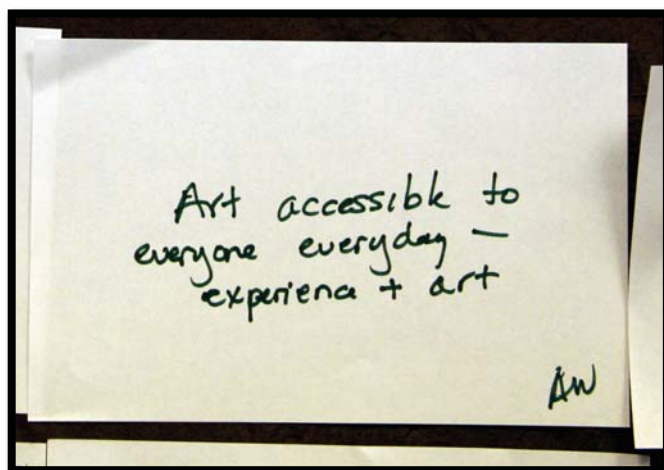 Art accessible to
everyone everyday –
experience + art
AW